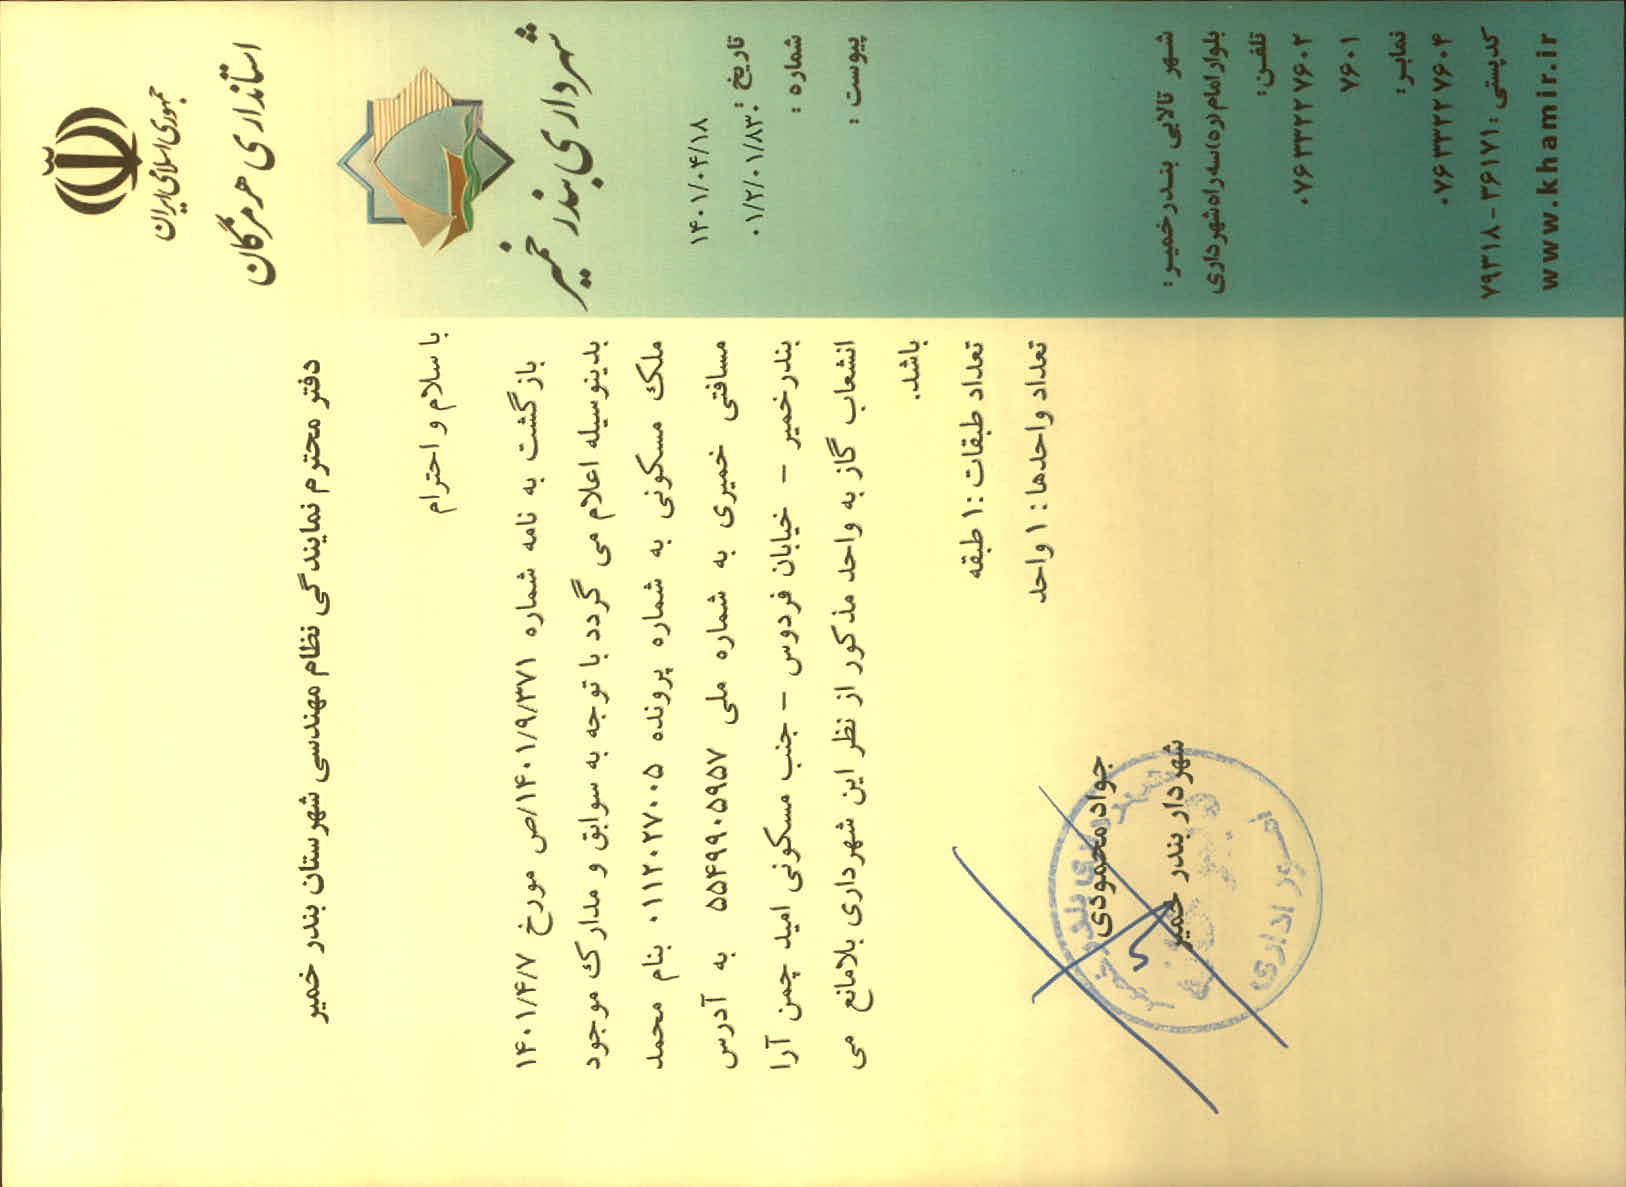 جمهوری اسلامی ایران
استانداری هرمزگان
شهرداری بندر خمیر
۱۴۰۱/۰۴/۱۸
تاریخ :
۰۱/۲/۰۱/۸۳۰
شماره :
پیوست :
دفتر محترم نمایندگی نظام مهندسی شهرستان بندر خمیر
با سلام و احترام
بازگشت به نامه شماره ۱۴۰۱/۹/۳۷۱/ص مورخ ۱۴۰۱/۴/۷
بدینوسیله اعلام می گردد با توجه به سوابق و مدارک موجود
ملک مسکونی به شماره پرونده ۰۱۱۲۰۲۷۰۰۵ بنام محمد
مسافتی خمیری به شماره ملی ۵۵۴۹۹۰۵۹۵۷ به آدرس
بندرخمیر - خیابان فردوس - جنب مسکونی امید چمن آرا
انشعاب گاز به واحد مذکور از نظر این شهرداری بلامانع می
باشد.
تعداد طبقات : ۱ طبقه
تعداد واحدها : ۱ واحد
جواد محمودی
شهردار بندر خمیر
امور اداری
شهر تالابی بندرخمیر :
بلوار امام (ره) سه راه شهرداری
تلفن:
۰۷۶۳۳۲۲۷۶۰۲
۷۶۰۱
نمابر :
۰۷۶۳۳۲۲۷۶۰۴
کدپستی : ۳۶۱۷۱-۷۹۳۱۸
www.khamir.ir